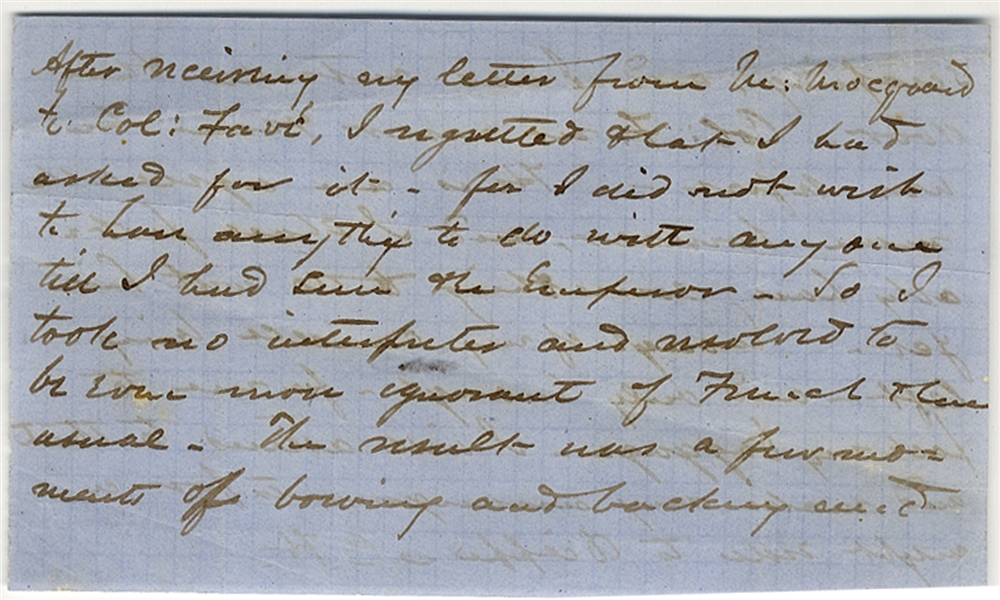 After receiving my letter from M: Mocquard
to Col: Favé, I regretted that I had
asked for it - for I did not wish
to have anything to do with any one
till I had seen the Emperor - So I
took no interpreter and resolved to
be even more ignorant of French than
usual - The result was a few mo=
ments of bowing and backing and